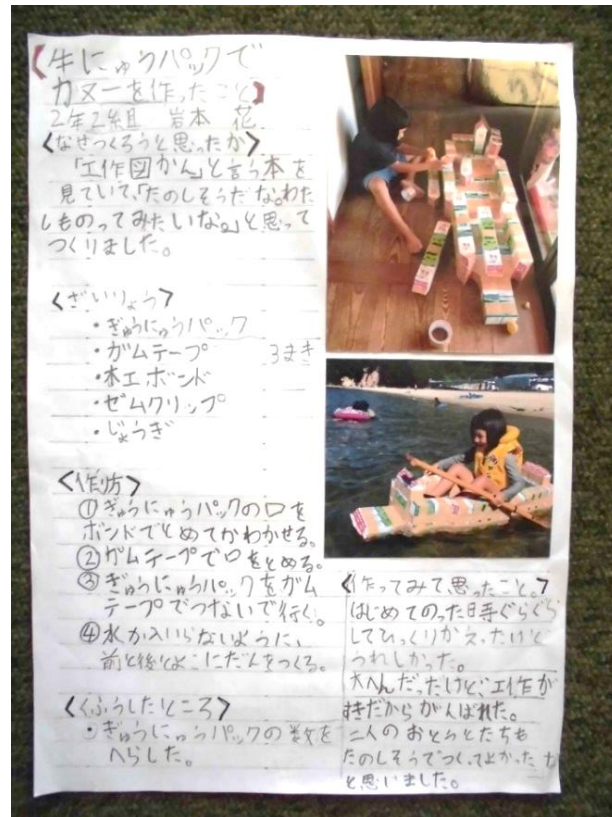 【牛にゅうパックで
カヌーを作ったこと】
2年2組 岩本 花
<なぜつくろうと思ったか>
「工作図かん」と言う本を
見ていて、「たのしそうだな。わた
しものってみたいな。」と思って
つくりました。
<ざいりょう>
・ぎゅうにゅうパック
・ガムテープ 3まき
・木工ボンド
・ゼムクリップ
・じょうぎ
<作り方>
①ぎゅうにゅうパックの口を
ボンドでとめてかわかせる。
②ガムテープで口をとめる。
③ぎゅうにゅうパックをガム
テープでつないで行く。
④水が入いらないように、
前と後とよこにだんをつくる。
<くふうしたところ>
・ぎゅうにゅうパックの数を
へらした。
<作ってみて、思ったこと。>
はじめてのった時ぐらぐら
してひっくりかえったけど
うれしかった。
大へんだったけど、工作が
好きだからがんばれた。
二人のおとうとたちも
たのしそうでつくってよかったな
と思いました。